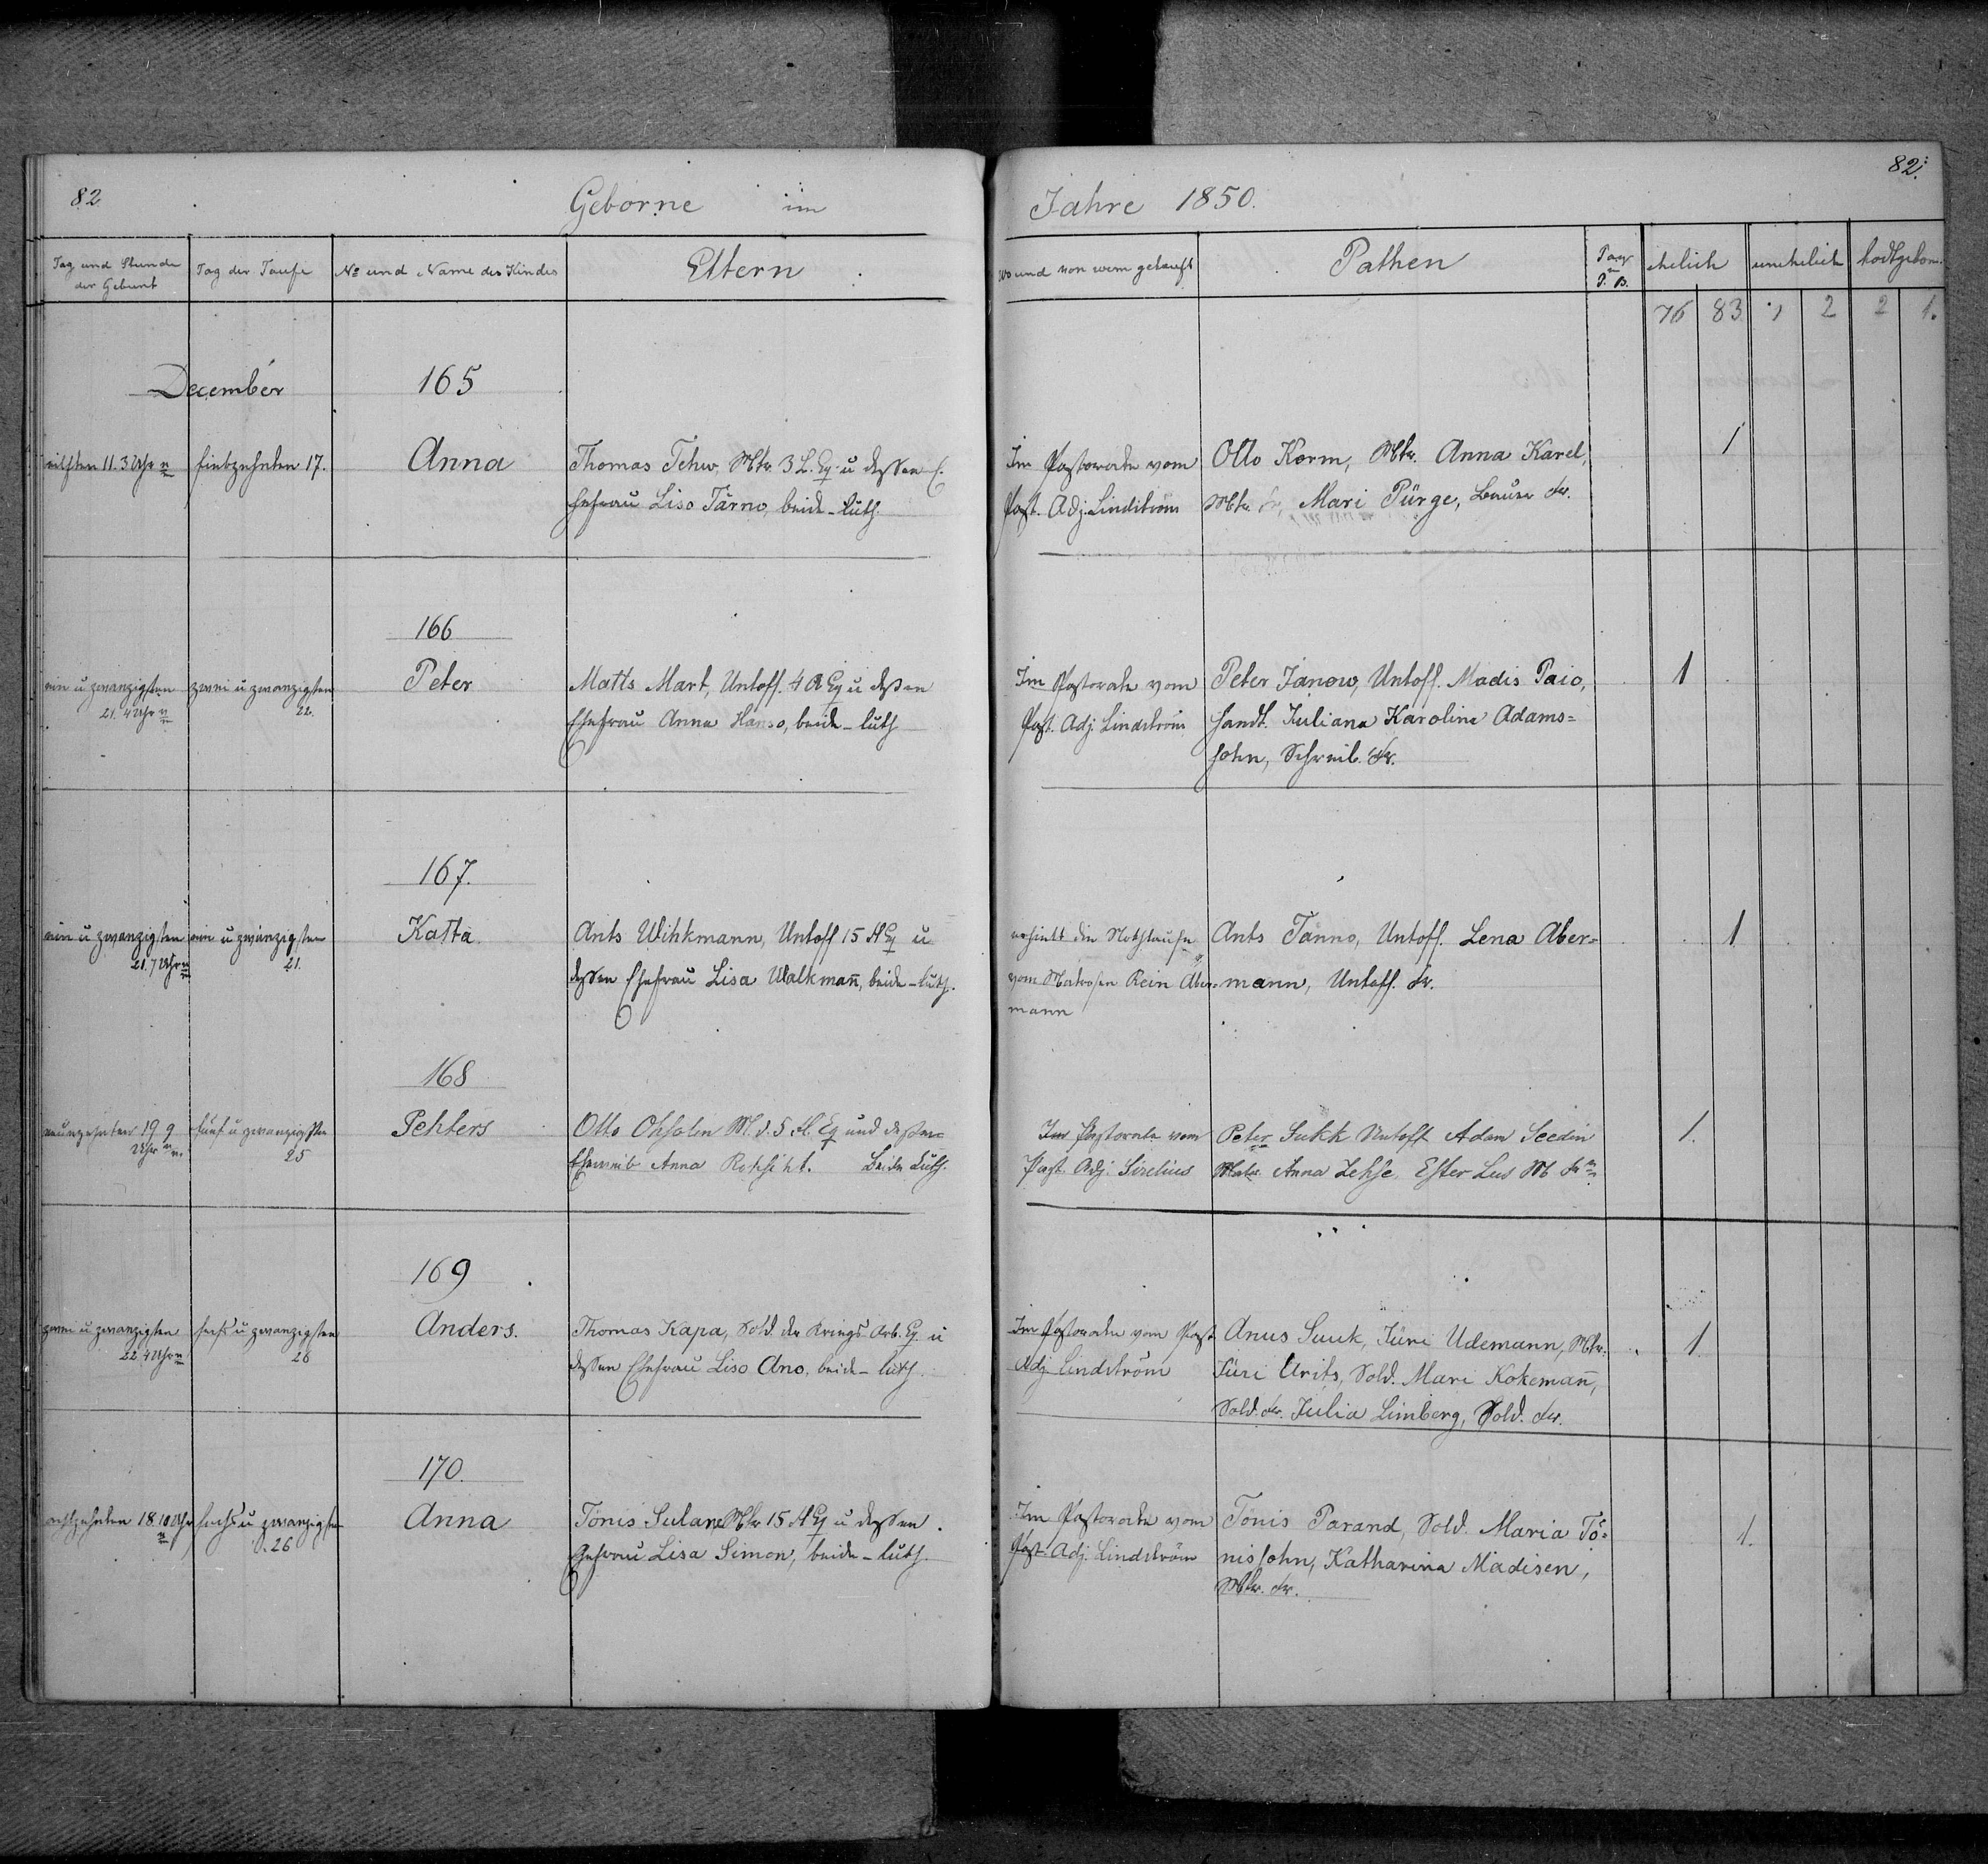 82
Geborne im
Jahre 1850.
82.
Tag und Stunde der Geburt
Tag der Taufe
No und Name des Kindes
Eltern
wo und von wem getauft
Pathen
ehelich
unehelich
todtgebor.
76 83 2 2 1.
December
165
eilften 11. 3 Uhr
siebzehnten 17.
Anna
Thomas Tehw, Mtr. 3 L. Eq. u dessen
Ehefrau Liso Tärno, beide luth.
Im Pastorate vom
Past. Adj. Lindström
Otto Korm, Mtr. Anna Karel,
Mtr. Fr, Mari Pürge, Bauer Fr.
1
166
ein u zwanzigsten
21. 4 Uhr
zwei u zwanzigsten
22.
Peter
Matts Mart, Untoff. 4 A Eq u dessen
Ehefrau Anna Hanso, beide luth
Im Pastorate vom
Past. Adj. Lindström
Peter Janow, Untoff. Madis Paio,
Handt. Juliana Karoline Adams=
sohn, Schreib. Fr.
1
167.
ein u zwanzigsten
21. 7 Uhr
ein u zwanzigsten
21.
Katta
Ants Wihkmann, Untoff 15 A Eq u
dessen Ehefrau Lisa Walkmañ, beide luth.
erhielt die Nothtaufe
vom Matrosen Rein Aber=
mann
Ants Tanno, Untoff. Lena Aber=
mann, Untoff. Fr.
1
168
neunzehnten 19 9
Uhr
fünf u zwanzigsten
25
Pehters
Otto Ohsolin M. d. 5 A. Eq und dessen
Eheweib Anna Rohsiht. Beide Luth.
Im Pastorate vom
Past. Adj. Sirelius
Peter Sukk Untoff Adam Seedin
Matr. Anna Lehse, Ester Lus M Fr
1.
169
zwei u zwanzigsten
22. 4 Uhr
sechs u zwanzigsten
26
Anders.
Thomas Kapa, Sold. der Kriegs Arb. Eq. u
dessen Ehefrau Liso Ano, beide luth.
Im Pastorate vom Past
Adj Lindström
Anus Suuk, Jüri Udemann, Mtr.
Jüri Urits, Sold. Mari Kokemañ,
Sold. Fr. Julia Limberg, Sold. Fr.
1
170.
achtzehnten 18. 10 Uhr
sechs u zwanzigsten
26
Anna
Tönis Sulane Mtr 15 A Eq u dessen
Ehefrau Lisa Simon, beide luth.
Im Pastorate vom
Past. Adj. Lindström
Tönis Parand, Sold. Maria Tö=
nissohn, Katharina Madisen,
Mtr. Fr.
1.